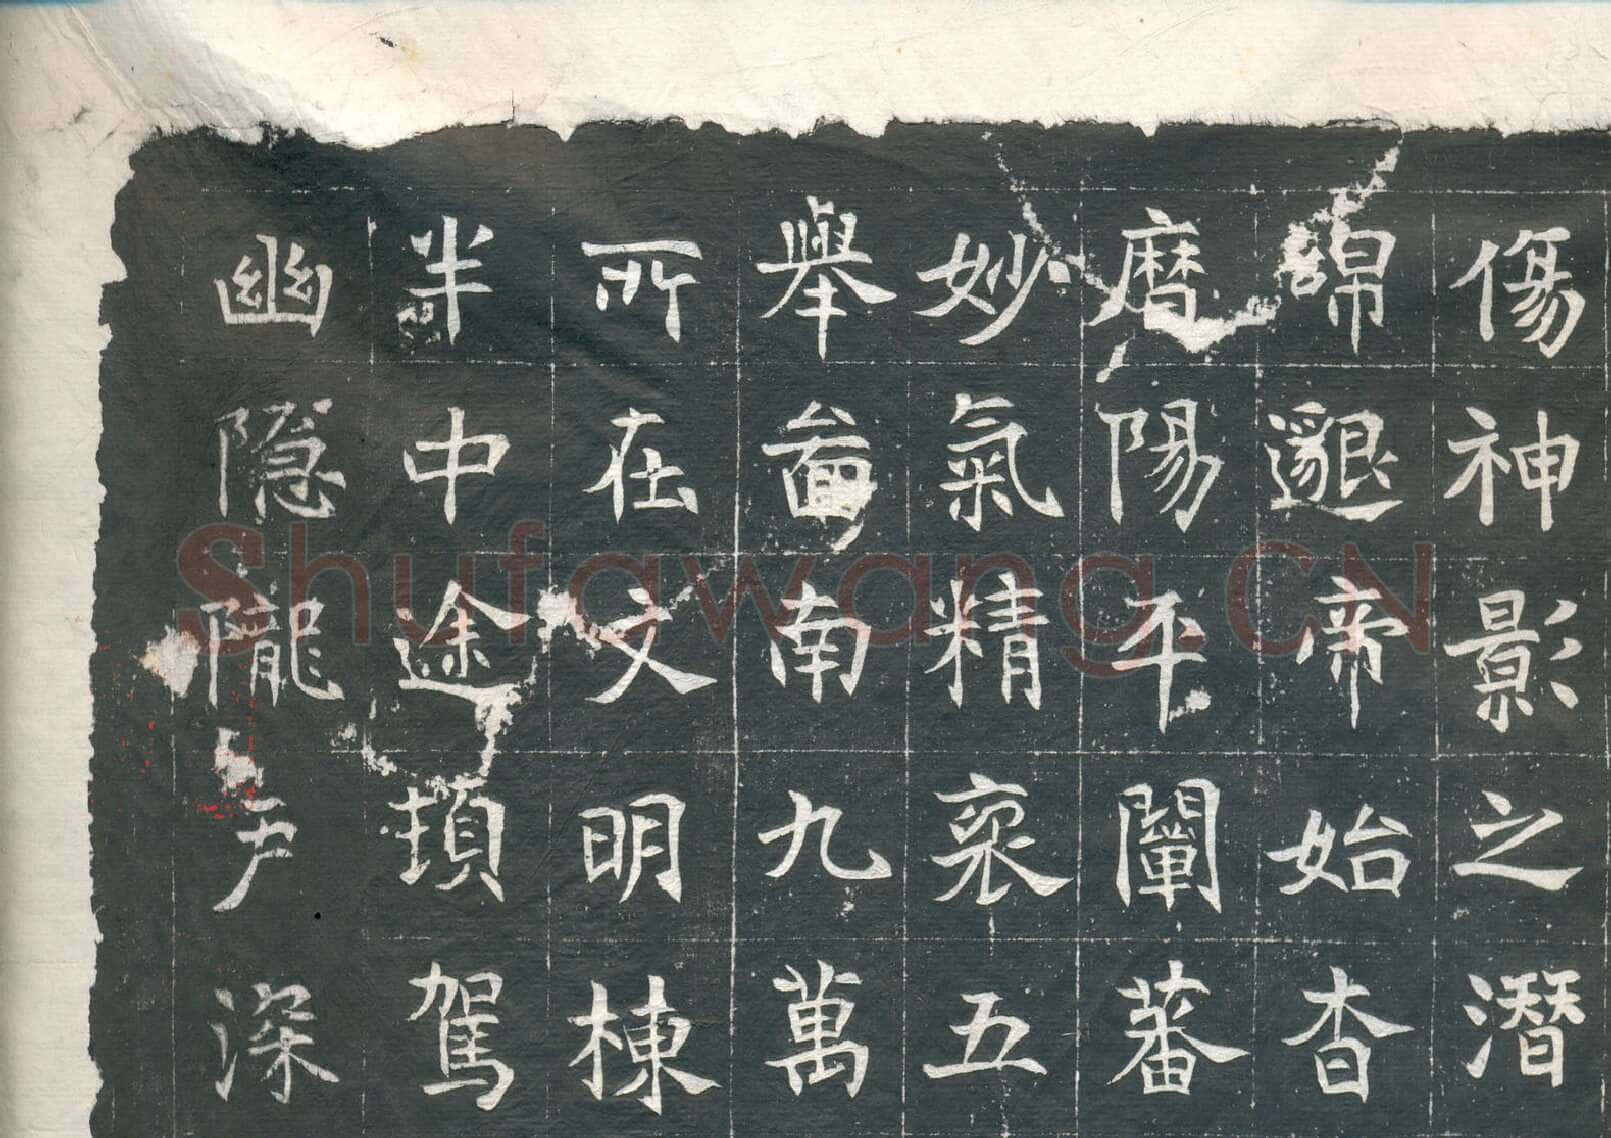 傷神影之潛
綿邈帝始杳
曆陽平闡蕃
妙氣精裒五
舉啚南九萬
所在文明棟
半中途頓駕
幽隐隴户深
Shufawang.CN